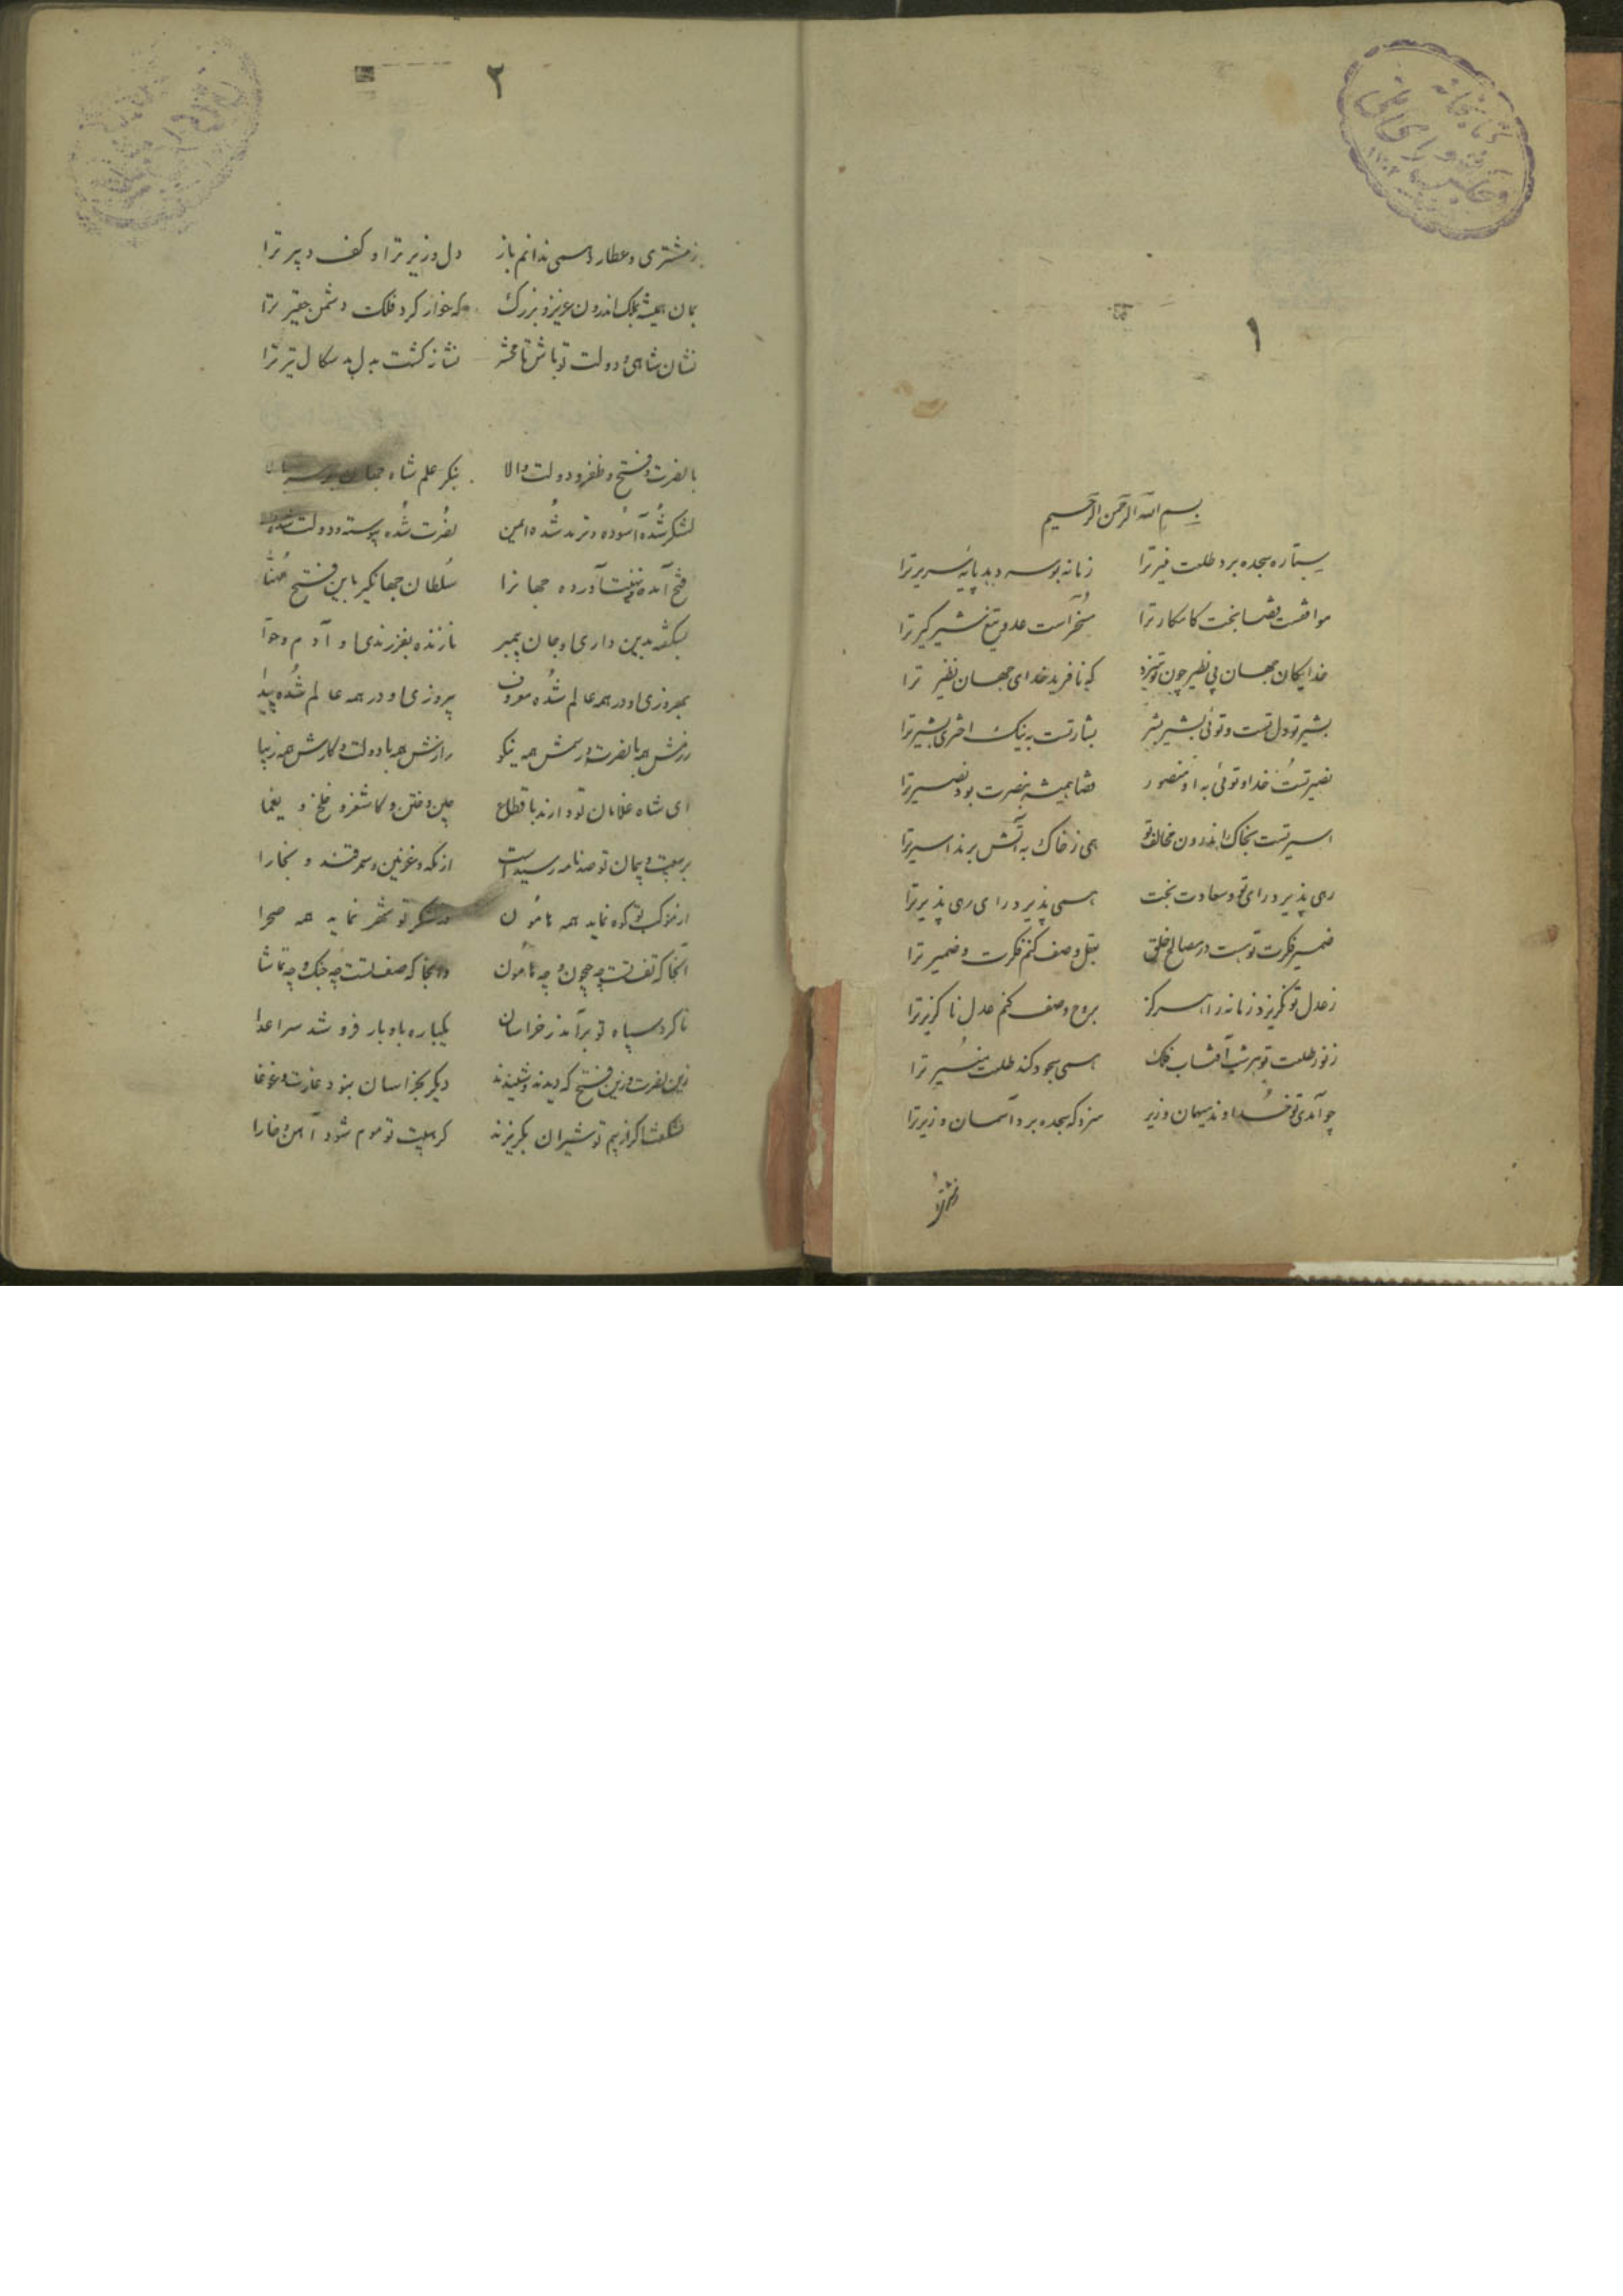 ۱
بسم الله الرحمن الرحیم
ستاره سجده برد طلعت منیر ترا زمانه بوسه دهد پایه سریر ترا
موافقست قضا بخت کامکار ترا مسخر است عدو تیغ شیر گیر ترا
خدایکان جهان بی نظیر چون تو سزد که نافرید خدای جهان نظیر ترا
بشیر تو دل تست و توئی بشیر بشر بشارتست به نیک اختری بشیر ترا
نصیر تست خدا و توئی به او منصور قضا همیشه بنصرت بود نصیر ترا
اسیر تست بخاک اندرون مخالف تو همی ز خاک به آتش برند اسیر ترا
رهی پذیرد رای تو و سعادت بخت همی پذیرد رای رهی پذیر ترا
ضمیر فکرت توست در مصالح خلق بعقل وصف کنم فکرت و ضمیر ترا
ز عدل تو نگریزد زمانه را هرگز بروح وصف کنم عدل ناگزیر ترا
ز نور طلعت تو هر شب آفتاب فلک همی سجود کند طلعت منیر ترا
چو آمدی تو خداوند سیهان وزیر سزد که سجده برد آسمان وزیر ترا
زمشتری
۲
ز مشتری و عطارد همی ندانم باز دل وزیر ترا و کف دبیر ترا
بمان همیشه بملک اندرون عزیز و بزرگ که خوار کرد فلک دشمن حقیر ترا
نشان شاهی و دولت تو باش تا محشر نشانه گشت بدل بدسکال تیر ترا
با نصرت و فتح و ظفر و دولت والا بنگر علم شاه جهان
لشکر شده آسوده و ترمد شده ایمن نصرت شده پیوسته و دولت شده
فتح آمده و تهنیت آورده جهانرا سلطان جهانگیر باین فتح مهنّا
بشکفته بدین داری او جان پیمبر نازنده بفرزندی او آدم و حوا
بهروزی او در همه عالم شده معروف پیروزی او در همه عالم شده پیدا
رزمش همه با نصرت و رسمش همه نیکو رازش همه با دولت و کارش همه زیبا
ای شاه غلامان تو دارند باقطاع چین و ختن و کاشغر و خلخ و یغما
بر بیعت و پیمان تو صد نامه رسید است از مکه و غزنین و سمرقند و بخارا
از موکب تو کوه نماید همه هامون وز لشکر تو شهر نماید همه صحرا
آنجا که تف تست چه جیحون و چه هامون وانجا که صف تست چه جنگ و چه تماشا
تا گرد سپاه تو برآمد ز خراسان یکباره به اوبار فرو شد سر اعدا
زین نصرت و زین فتح که دیدند و شنیدند دیگر بخراسان نبود غارت و غوغا
نشگفت اگر از بیم تو شیران بگریزند کز هیبت تو موم شود آهن و خارا